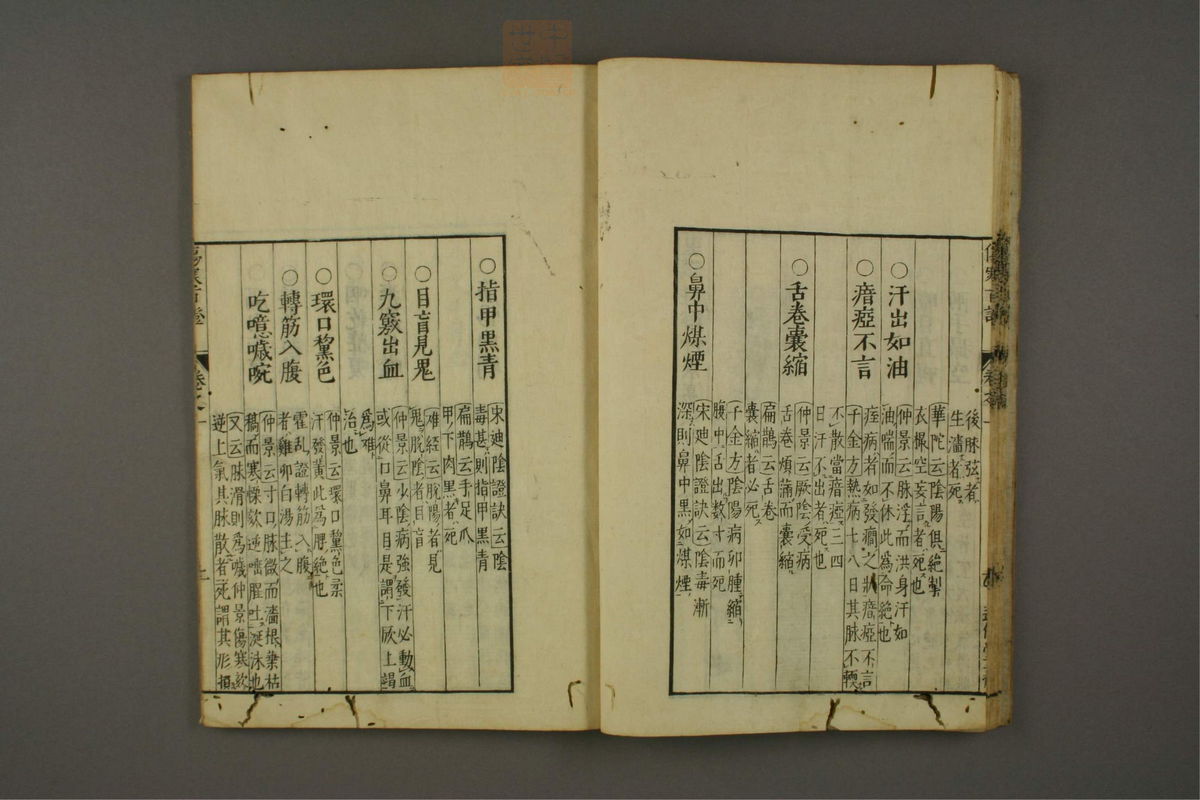 後脉弦者
生濇者死
華陀云陰陽俱絕掣
衣撮空妄言者死也
○汗出如油
仲景云脉浮而洪身汗如
油喘而不休此爲命絕也
○瘖瘂不言
痓病者如發癎之狀瘖瘂不言
千金方熱病七八日其脉不輭
不散當瘖瘂三四
日汗不出者死也
○舌卷囊縮
仲景云厥陰受病
舌卷煩滿而囊縮
扁鵲云舌卷
囊縮者必死
千金方陰陽病卵腫縮
腹中舌出數寸而死
○鼻中煤煙
宋廸陰證訣云陰毒漸
深則鼻中黑如煤煙
○指甲黑青
宋廸陰證訣云陰
毒甚則指甲黑青
扁鵲云手足爪
甲下肉黑者死
○目盲見鬼
难經云脫陽者見
鬼脫陰者目盲
○九竅出血
仲景云少陰病強發汗必動血
或從口鼻耳目是謂下厥上竭
爲难
治也
○環口黧色
仲景云環口黧色柔
汗發黃此爲脾絕也
○轉筋入腹
霍亂證轉筋入腹
者雞卵白湯主之
吃噫噦啘
仲景云寸口脉微而濇根葉枯
槁而寒慄欬逆唾腥吐涎沫也
又云脉滑則爲噦仲景傷寒欬
逆上氣其脉散者死謂其形損